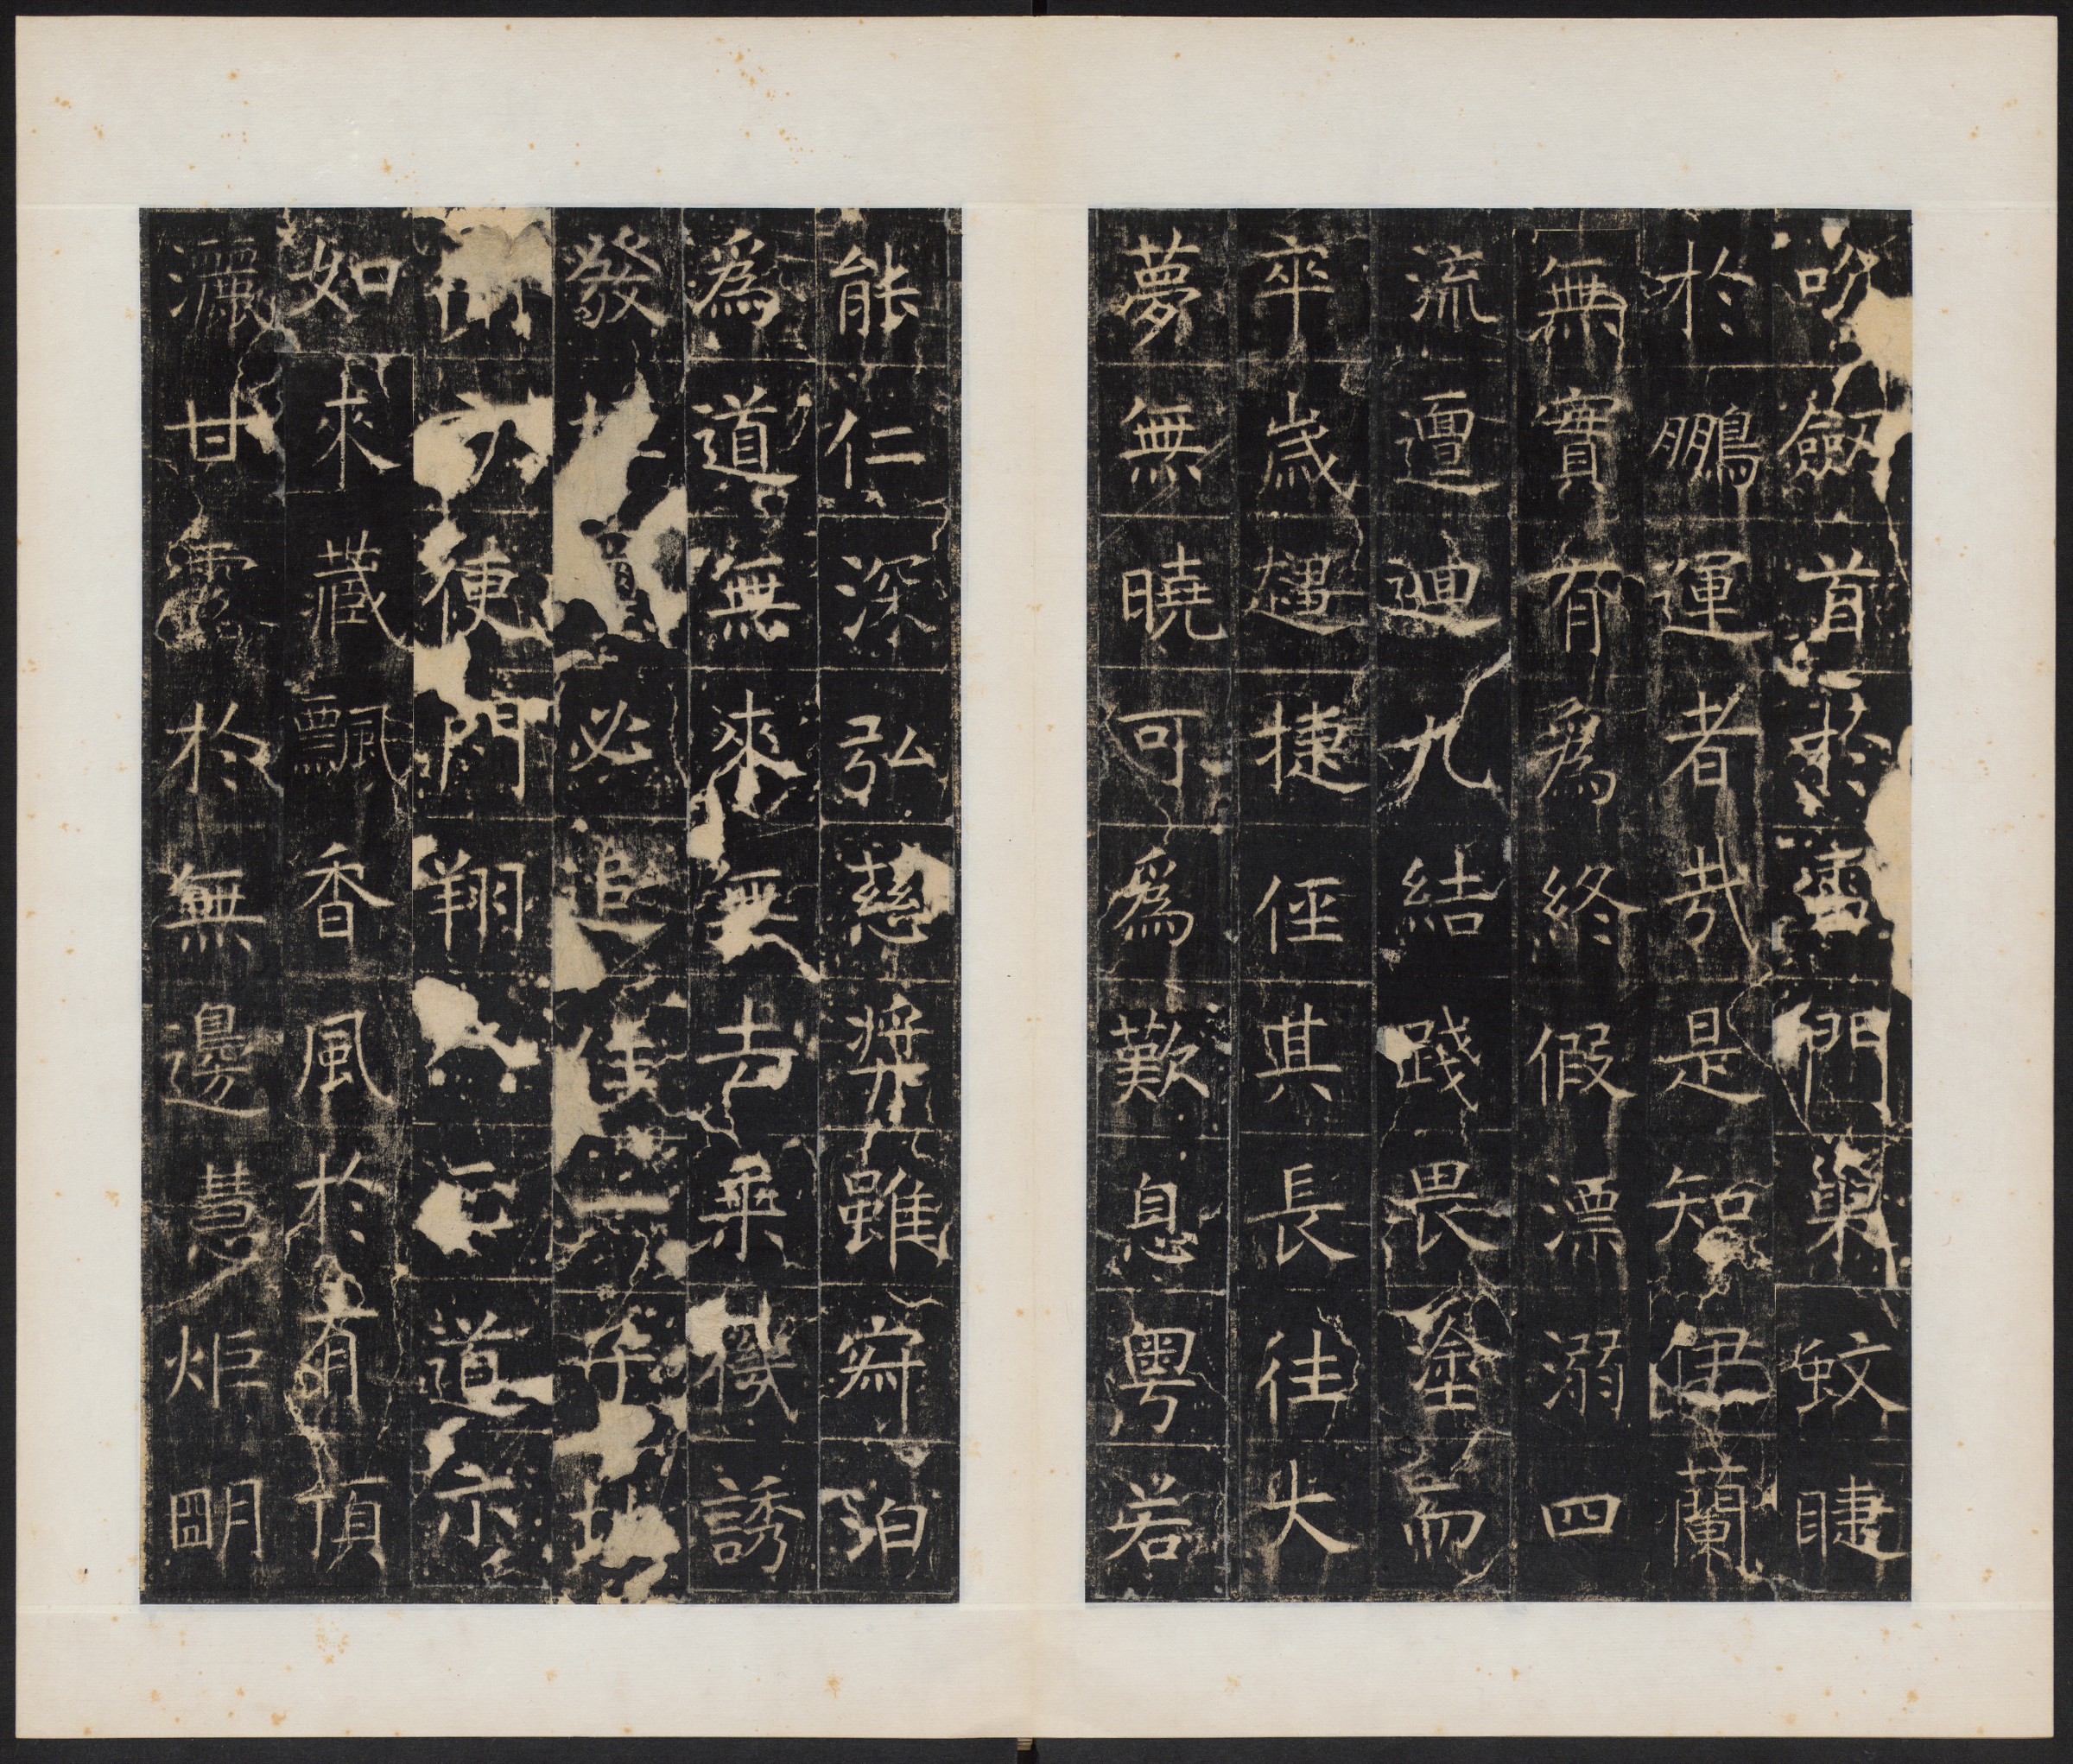 吹劒首於雷門巢蚊睫
於鵬運者哉是知伊蘭
無實有爲終假漂溺四
流邅迴九結踐畏塗而
卒歲趨捷俓其長往大
夢無曉可爲歎息粤若
能仁深弘慈奬雖寂泊
爲道無來無去乘機誘
發必追住一子地
開方便門翔八正道示
如來藏飄香風於有頂
灑甘露於無邊慧炬明